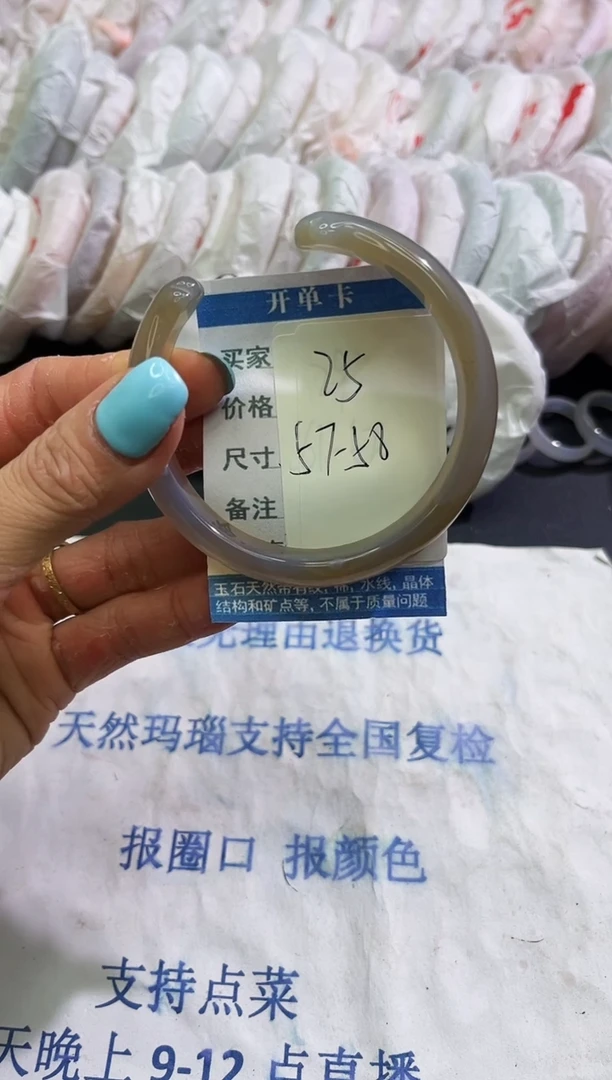 开单卡
买家
25
价格
尺寸
57-58
备注
水线, 晶体
结构和矿点等, 不属于质量问题
理由退换货
天然玛瑙支持全国复检
报圈口 报颜色
支持点菜
天晚上 9-12 点直播